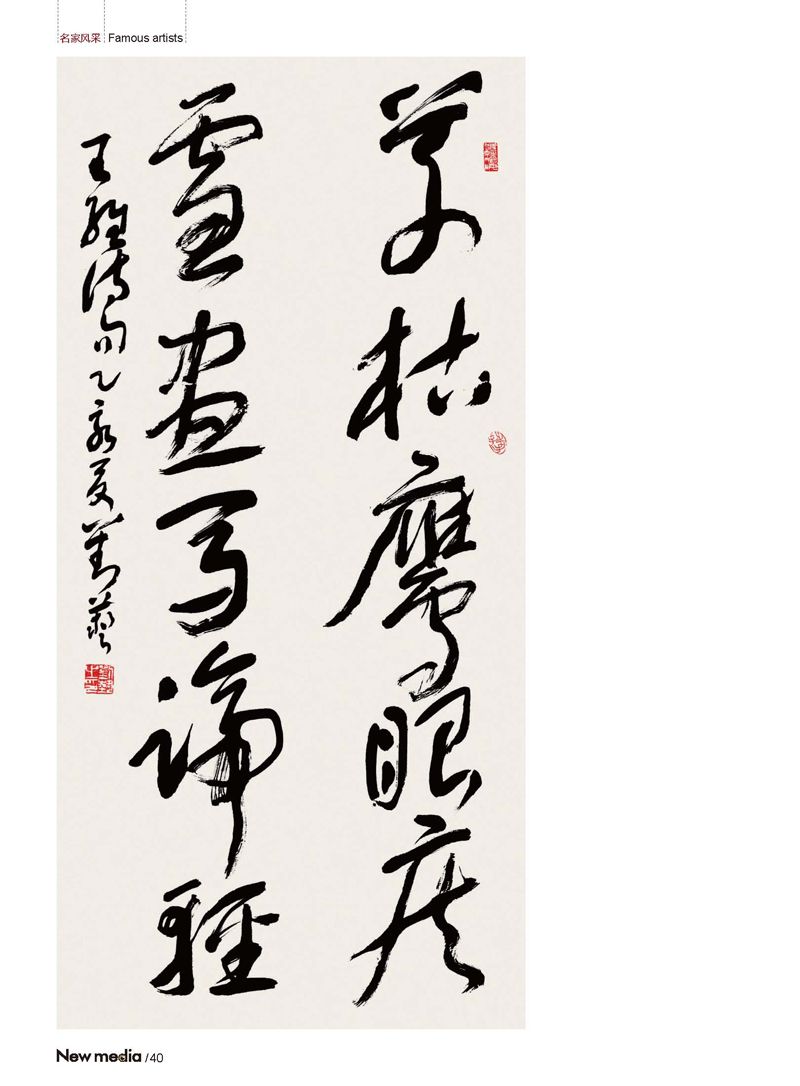 名家风采 Famous artists
草枯鷹眼疾
雪盡馬蹄輕
王維詩句乙亥夏劉藝
New media /40